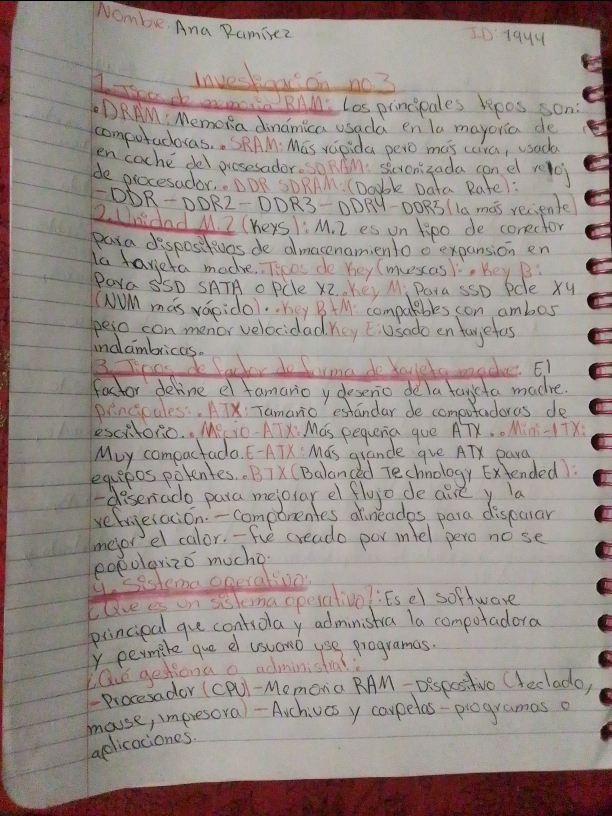 Nombre: Ana Ramírez ID: 1944
Investigación no.3
1. Tipos de memoria RAM: Los principales tipos son:
•DRAM: Memoria dinámica usada en la mayoría de
computadoras. •SRAM: Más rápida pero más cara, usada
en caché del prosesador. •SDRAM: sicronizada con el reloj
de procesador. •DDR SDRAM: (Double Data Rate):
-DDR-DDR2-DDR3-DDR4-DDR5(la más reciente)
2. Unidad M.2 (Keys): M.2 es un tipo de conector
para dispositivos de almacenamiento o expansión en
la tarjeta madre. Tipos de Key (muescas): •Key B:
Para SSD SATA o PCIe X2. •Key M: Para SSD PCIe X4
(NVM más rápido). •Key B+M: compatibles con ambos
pero con menor velocidad. Key E: Usado en tarjetas
inalámbricas.
3. Tipos de factor de forma de tarjeta madre: El
factor define el tamaño y deseño de la tarjeta madre.
principales: •ATX: Tamaño estándar de computadoras de
escritorio. •Micro-ATX: Más pequeña que ATX. •Mini-ITX:
Muy compactada. E-ATX: Más grande que ATX para
equipos potentes. •BTX (Balanced Technology Extended):
-diseñado para mejorar el flujo de aire y la
refrijeración. -Componentes alineados para disparar
mejor el calor. -Fue creado por intel pero no se
popularizó mucho.
4. Sistema operativo:
¿Que es un sistema operativo?: Es el software
principal que controla y administra la computadora
y permite que el usuario use programas.
¿Qué gestiona o administra?:
-Procesador (CPU) -Memoria RAM -Dispositivo (teclado,
mouse, impresora) -Archivos y carpetas -programas o
aplicaciones.